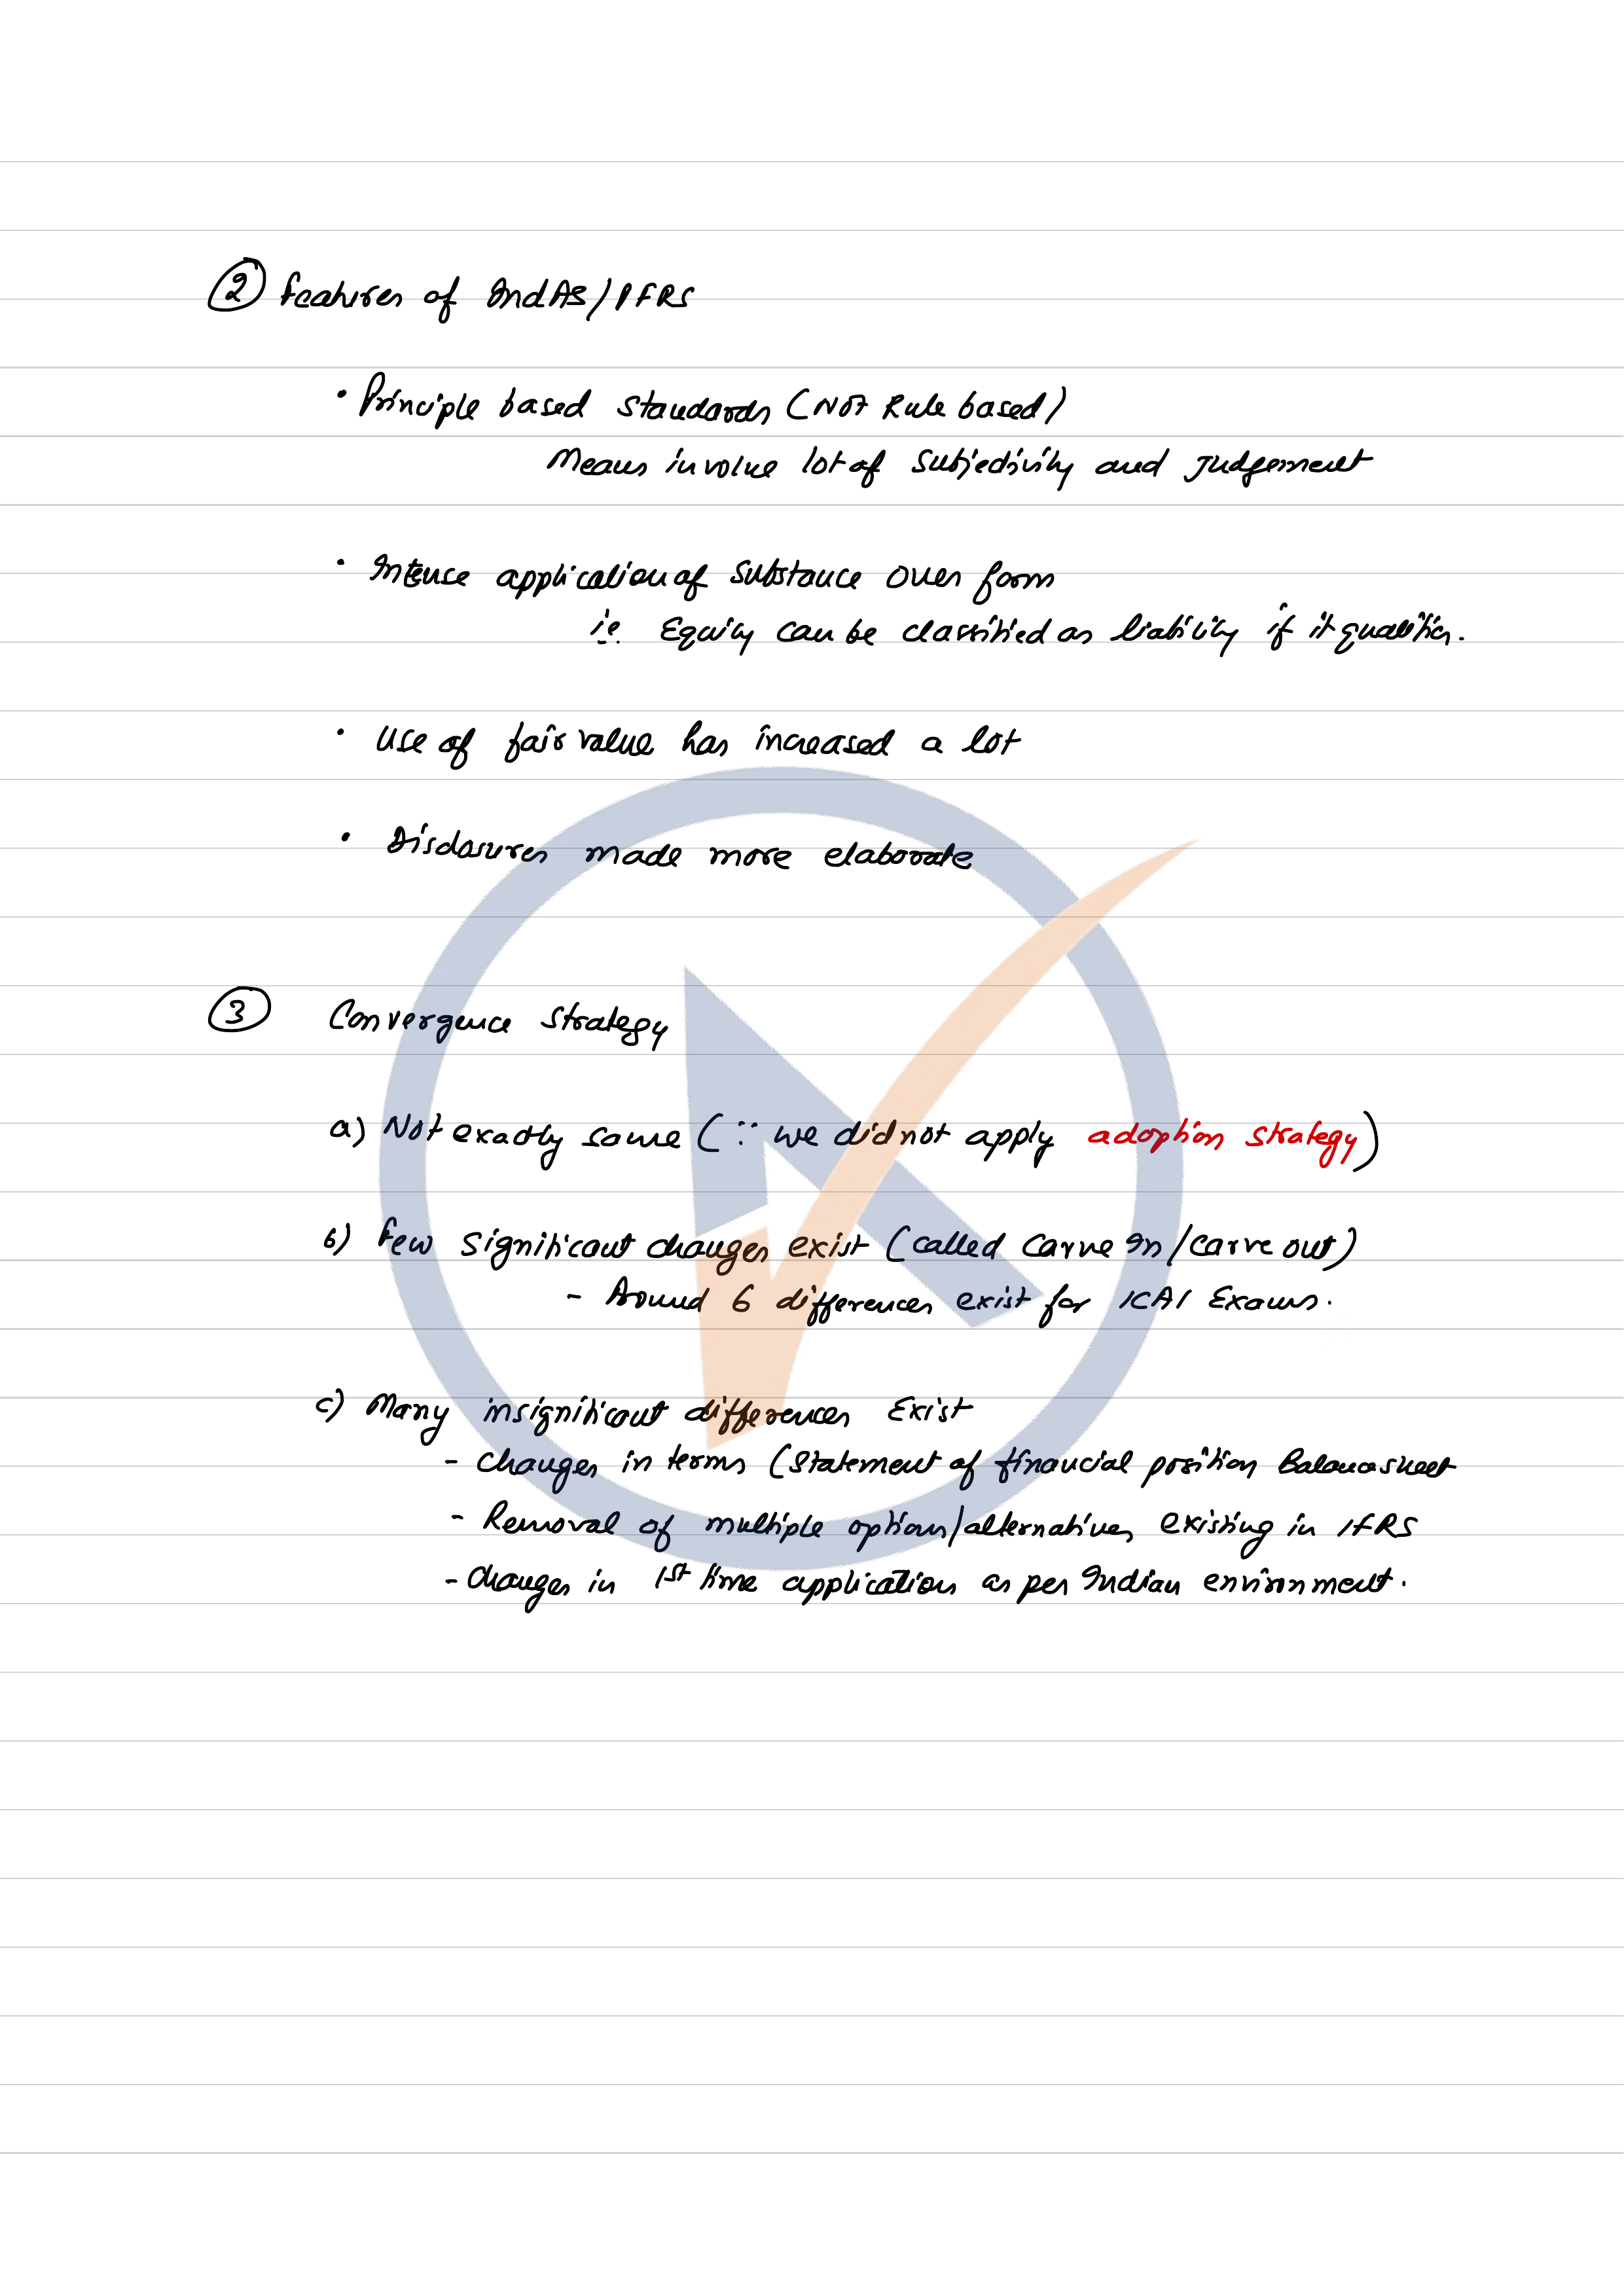 ② Features of IndAS/IFRS
• Principle based standards (Not Rule based)
Means involve lot of subjectivity and Judgement
• Intense application of substance over form
i.e. Equity can be classified as liability if it qualifies.
• Use of fair value has increased a lot
• Disclosures made more elaborate
③ Convergence Strategy
a) Not exactly same (∵ we did not apply adoption strategy)
b) Few significant changes exist (called Carve In/Carve out)
- Around 6 differences exist for ICAI Exams.
c) Many insignificant differences Exist
- Changes in terms (Statement of financial position Balancesheet
- Removal of multiple options/alternatives existing in IFRS
- Changes in 1st time application as per Indian environment.